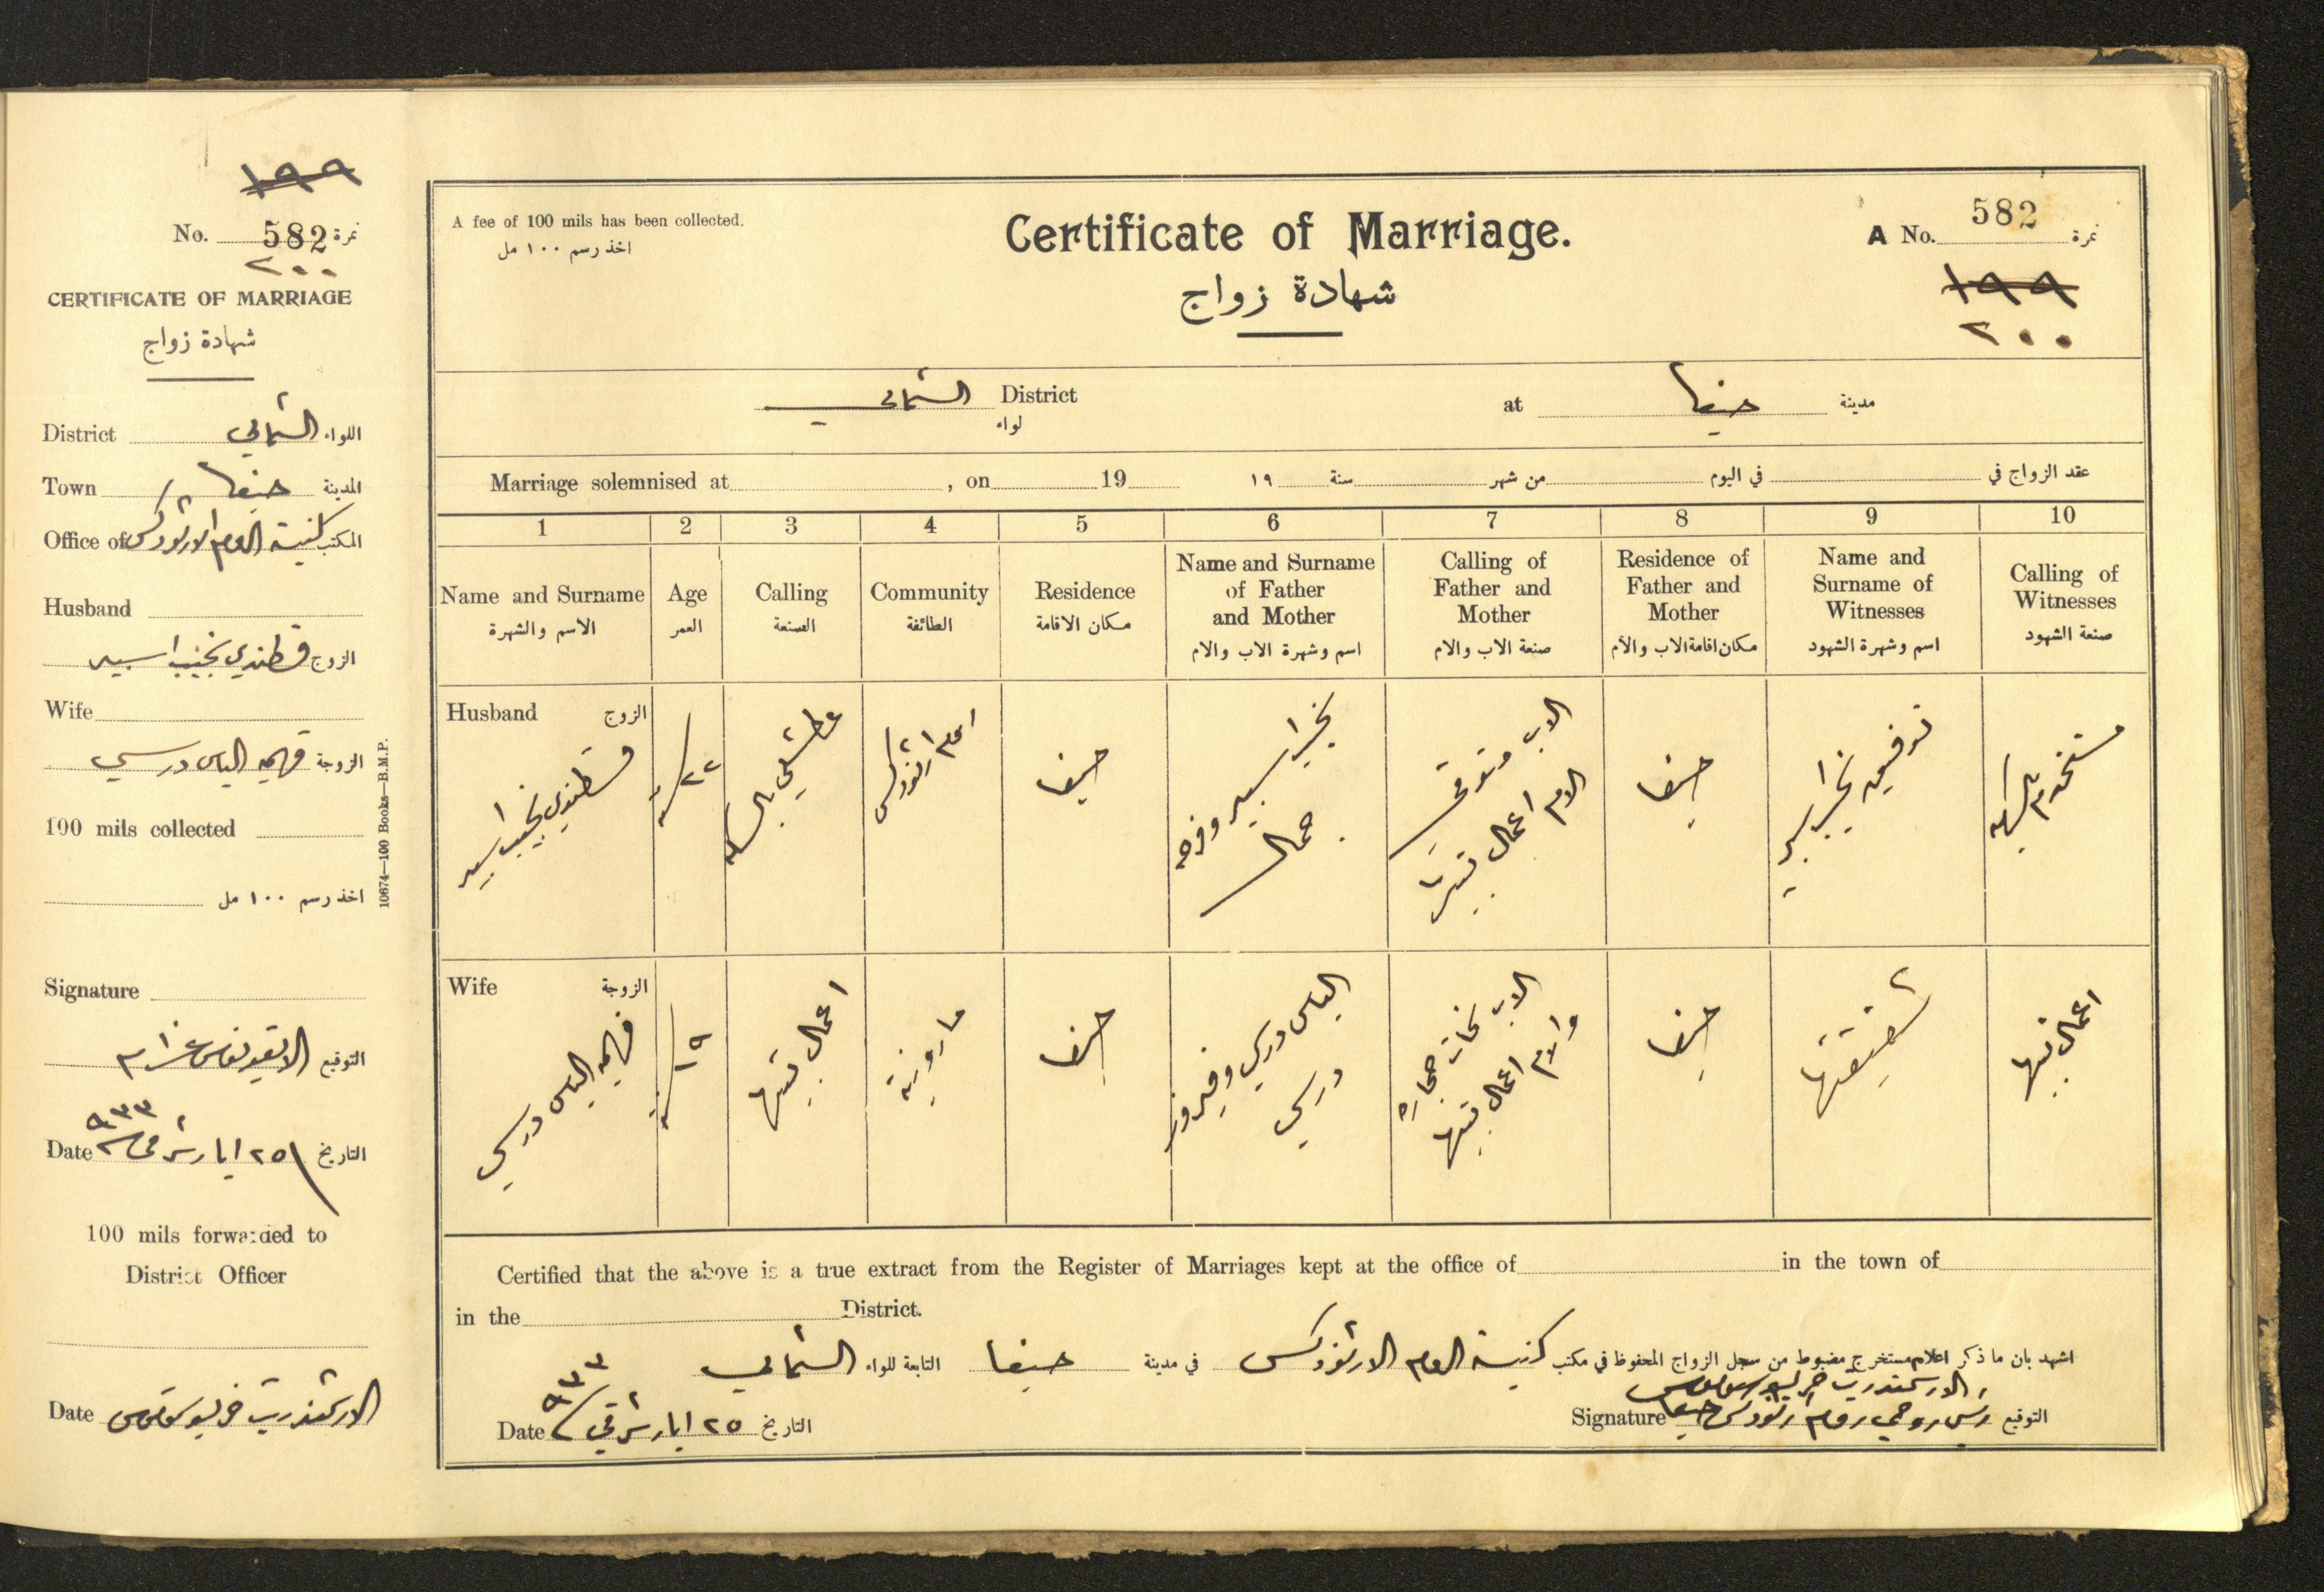 ١٩٩
No. 582 نمرة
٢٠٠
CERTIFICATE OF MARRIAGE
شهادة زواج
District الشمالي اللواء
Town حيفا المدينة
Office of كنيسة الروم الارثوذكس المكتب
Husband
الزوج قسطندي نجيب اسبير
Wife
الزوجة فهيمه الياس درسي
100 mils collected
اخذ رسم ١٠٠ مل
10674—100 Books—B.M.P.
Signature
التوقيع
Date ٢٥ ايار شرقي سنة ٩٣٣ التاريخ
100 mils forwarded to
District Officer
Date
A fee of 100 mils has been collected.
اخذ رسم ١٠٠ مل
Certificate of Marriage.
شهادة زواج
A No. 582 نمرة
١٩٩
٢٠٠
الشمالي District
لواء
at حيفا مدينة
Marriage solemnised at , on 19 ١٩ سنة من شهر في اليوم عقد الزواج في
1 2 3 4 5 6 7 8 9 10
Name and Surname
الاسم والشهرة
Age
العمر
Calling
الصنعة
Community
الطائفة
Residence
مكان الاقامة
Name and Surname
of Father
and Mother
اسم وشهرة الاب والام
Calling of
Father and
Mother
صنعة الاب والام
Residence of
Father and
Mother
مكان اقامة الاب والام
Name and
Surname of
Witnesses
اسم وشهرة الشهود
Calling of
Witnesses
صنعة الشهود
Husband الزوج
قسطندي نجيب اسبير
٢٢ سنة
حيفا
نجيب اسبير وفرحه
جمال
الاب متوفي
الام اعمال بيتها
حيفا
توفيق نجيب اسبير
Wife الزوجة
فهيمه الياس درسي
١٩ سنة
اعمال بيتها
مارونية
حيفا
الياس درسي وفيروز
درسي
الاب نحات حجاره
والام اعمال بيتها
حيفا
شقيقتها
اعمال بيتها
Certified that the above is a true extract from the Register of Marriages kept at the office of in the town of
in the District.
اشهد بان ما ذكر اعلام مستخرج مضبوط من سجل الزواج المحفوظ في مكتب كنيسة الروم الارثوذكس في مدينة حيفا التابعة للواء الشمالي
Date ٢٥ ايار شرقي سنة ٩٣٣ التاريخ
Signature رئيس روحي روم ارثوذكس حيفا التوقيع